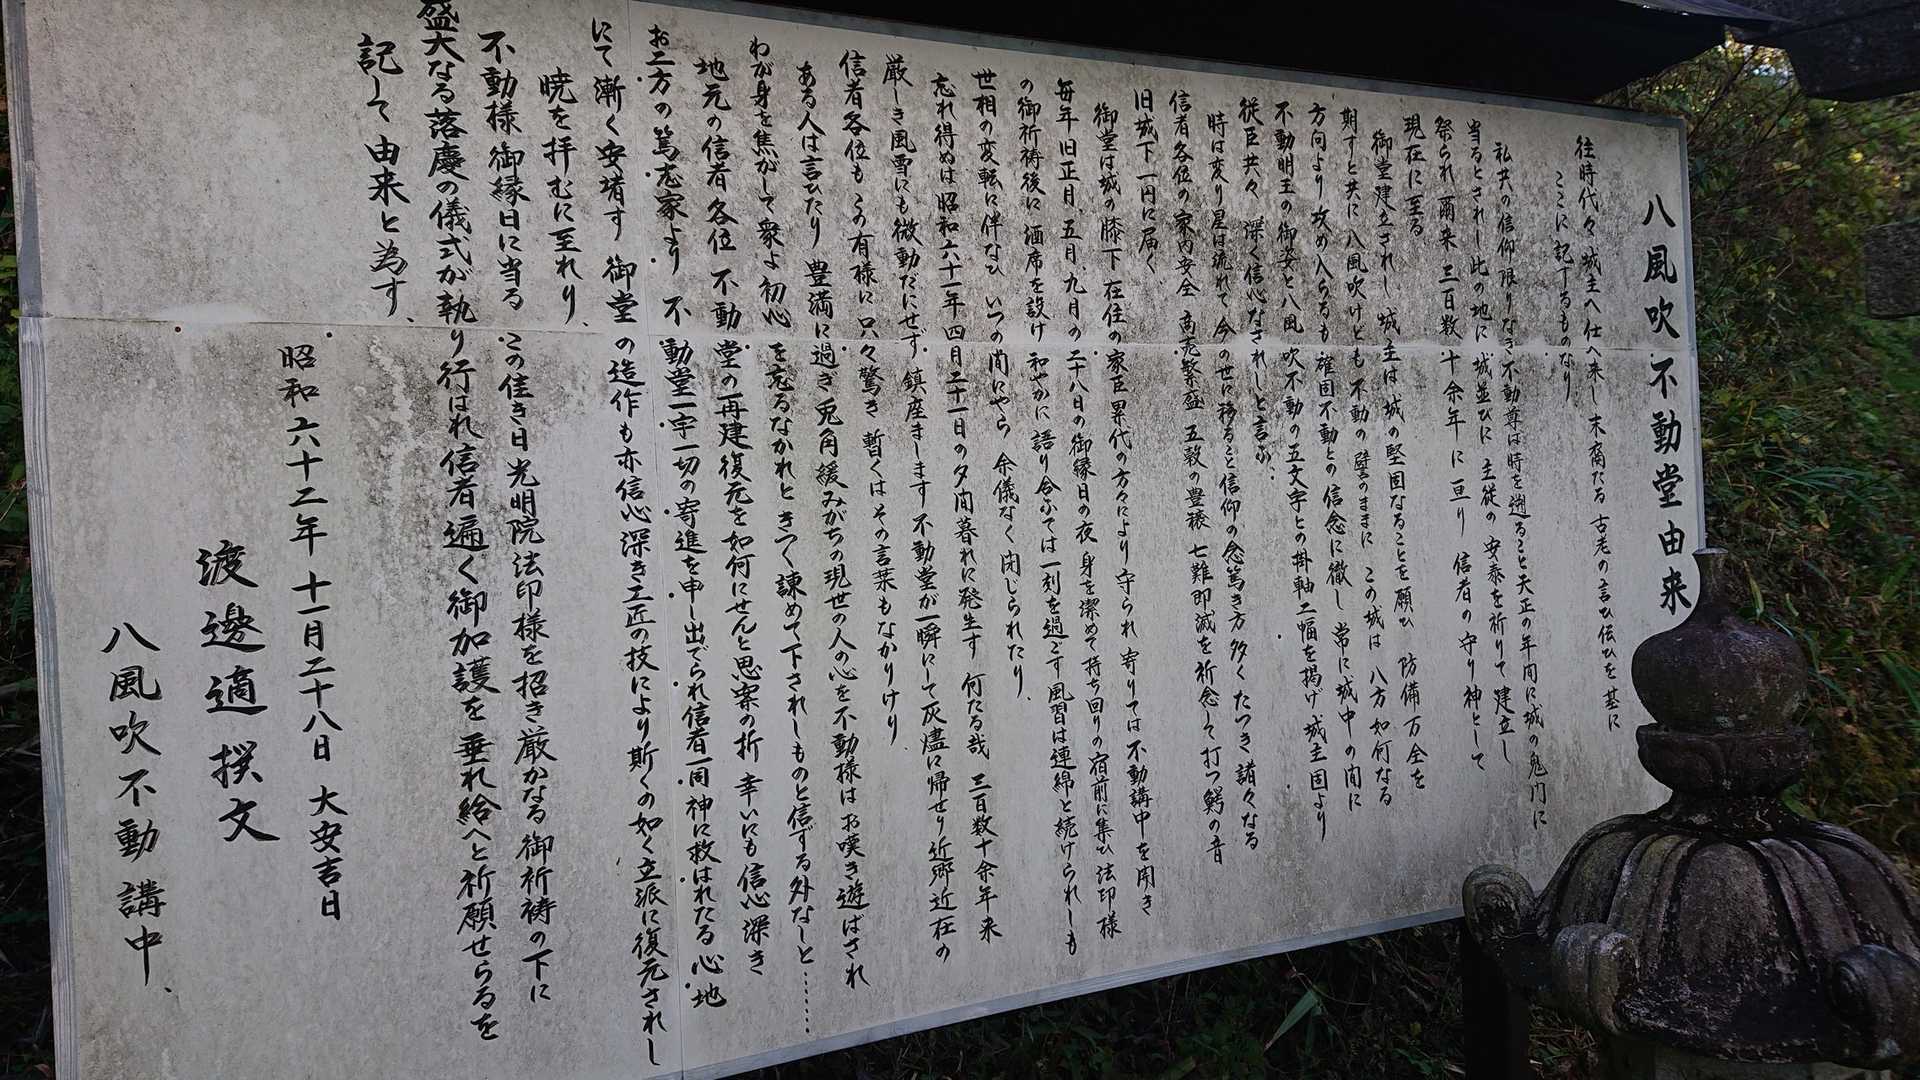 八風吹不動堂由来
往時代々城主へ仕へ来し末裔たる古老の言ひ伝ひを基に
ここに記するものなり
私共の信仰限りなき不動尊は時を遡ること天正の年間に城の鬼門に
当るとされし此の地に城並びに主従の安泰を祈りて建立し
祭られ爾来三百数十余年に亘り信者の守り神として
現在に至る
御堂建立されし城主は城の堅固なることを願ひ防備万全を
期すと共に八風吹けども不動の譬のままにこの城は八方如何なる
方向より攻め入らるも確固不動との信念に徹し常に城中の間に
不動明王の御姿と八風吹不動の五文字との掛軸二幅を掲げ城主固より
従臣共々深く信心なされしと言ふ
時は変り星は流れて今の世に移ると信仰の念篤き方多くたつき諸々なる
信者各位の家内安全商売繁盛五穀の豊穣七難即滅を祈念して打つ鰐の音
旧城下一円に届く
御堂は城の膝下在住の家臣累代の方々により守られ寄りては不動講中を開き
毎年旧正月、五月、九月の二十八日の御縁日の夜身を潔めて持ち回りの宿前に集ひ法印様
の御祈祷後に酒席を設け和やかに語り合ふては一刻を過ごす風習は連綿と続けられしも
世相の変転に伴なひいつの間にやら余儀なく閉じられたり、
忘れ得ぬは昭和六十一年四月二十一日の夕間暮れに発生す何たる哉三百数十余年来
厳しき風雪にも微動だにせず鎮座まします不動堂が一瞬にして灰燼に帰せり近郷近在の
信者各位もこの有様に只々驚き暫くはその言葉もなかりけり、
ある人は言ひたり豊満に過ぎ兎角緩みがちの現世の人の心を不動様はお嘆き遊ばされ
わが身を焦がして衆よ初心を忘るなかれときつく諫めて下されしものと信ずる外なしと……
地元の信者各位不動堂の再建復元を如何にせんと思案の折幸いにも信心深き
お二方の篤志家より不動堂一宇一切の寄進を申し出でられ信者一同神に救はれたる心地
にて漸く安堵す御堂の造作も亦信心深き工匠の技により斯くの如く立派に復元されし
暁を拝むに至れり、
不動様御縁日に当るこの佳き日光明院法印様を招き厳かなる御祈祷の下に
盛大なる落慶の儀式が執り行はれ信者遍く御加護を垂れ給へと祈願せらるを
記して由来と為す、
昭和六十二年十一月二十八日大安吉日
渡邊適撰文
八風吹不動講中、